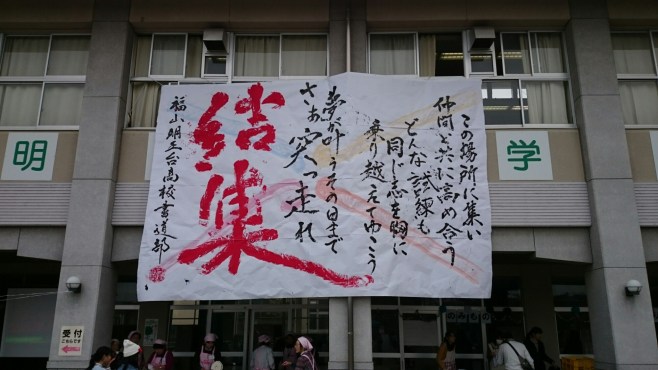 この場所に集い
仲間と共に高め合う
どんな試練も
同じ志を胸に
乗り越えてゆこう
夢が叶うその日まで
さあ突っ走れ
結集
福山明王台高校書道部
明
学
受付
こちらです
のみもの